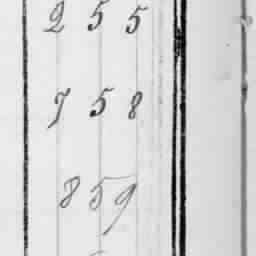 255
758
859